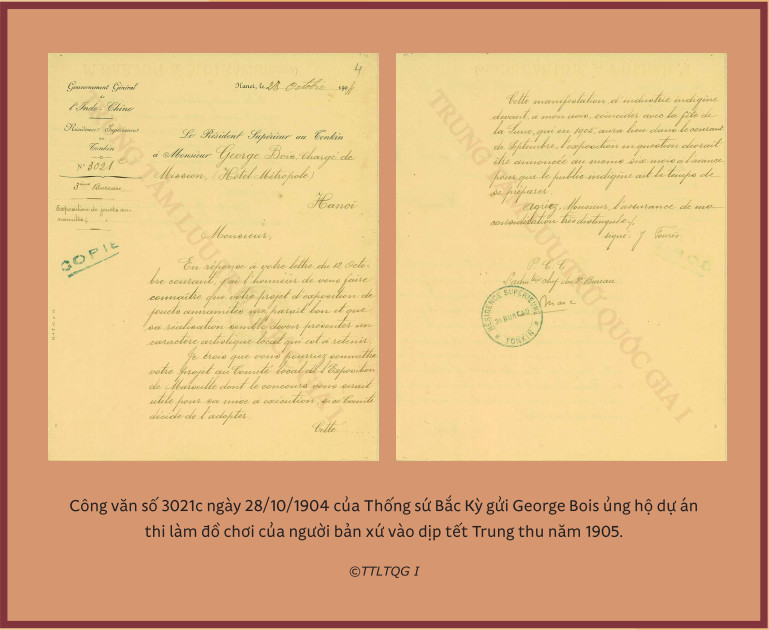 4
Gouvernement Général
de
l'Indo-Chine
Résidence Supérieure
au
Tonkin
N° 3021
3ème Bureau
Exposition de jouets an-
namites
COPIE
Hanoi, le 28 Octobre 1904
Le Résident Supérieur au Tonkin
à Monsieur George Bois, Chargé de
Mission, (Hôtel Métropole)
Hanoi
Monsieur,
En réponse à votre lettre du 12 Octo-
bre courant, j'ai l'honneur de vous faire
connaître que votre projet d'exposition de
jouets annamites me paraît bon et que
sa réalisation semble devoir présenter un
caractère artistique local qui est à retenir.
Je crois que vous pourriez soumettre
votre projet au Comité local de l'Exposition
de Marseille dont le concours vous serait
utile pour sa mise à exécution, si ce Comité
décide de l'adopter.
Cette
Cette manifestation d'industrie indigène
devant, à mon avis, coïncider avec la fête de
la Lune, qui en 1905, aura lieu dans le courant
de Septembre, l'exposition en question devrait
être annoncée au moins six mois à l'avance
pour que le public indigène ait le temps de
se préparer.
Agréez, Monsieur, l'assurance de ma
considération très distinguée.
signé: J Fourès
P. C. C.
chef du 3e Bureau
RÉSIDENCE SUPÉRIEURE
3e BUREAU
TONKIN
TRUNG TÂM LƯU TRỮ QUỐC GIA I
TRUNG TÂM LƯU TRỮ QUỐC GIA I
Công văn số 3021c ngày 28/10/1904 của Thống sứ Bắc Kỳ gửi George Bois ủng hộ dự án
thi làm đồ chơi của người bản xứ vào dịp tết Trung thu năm 1905.
©TTLTQG I